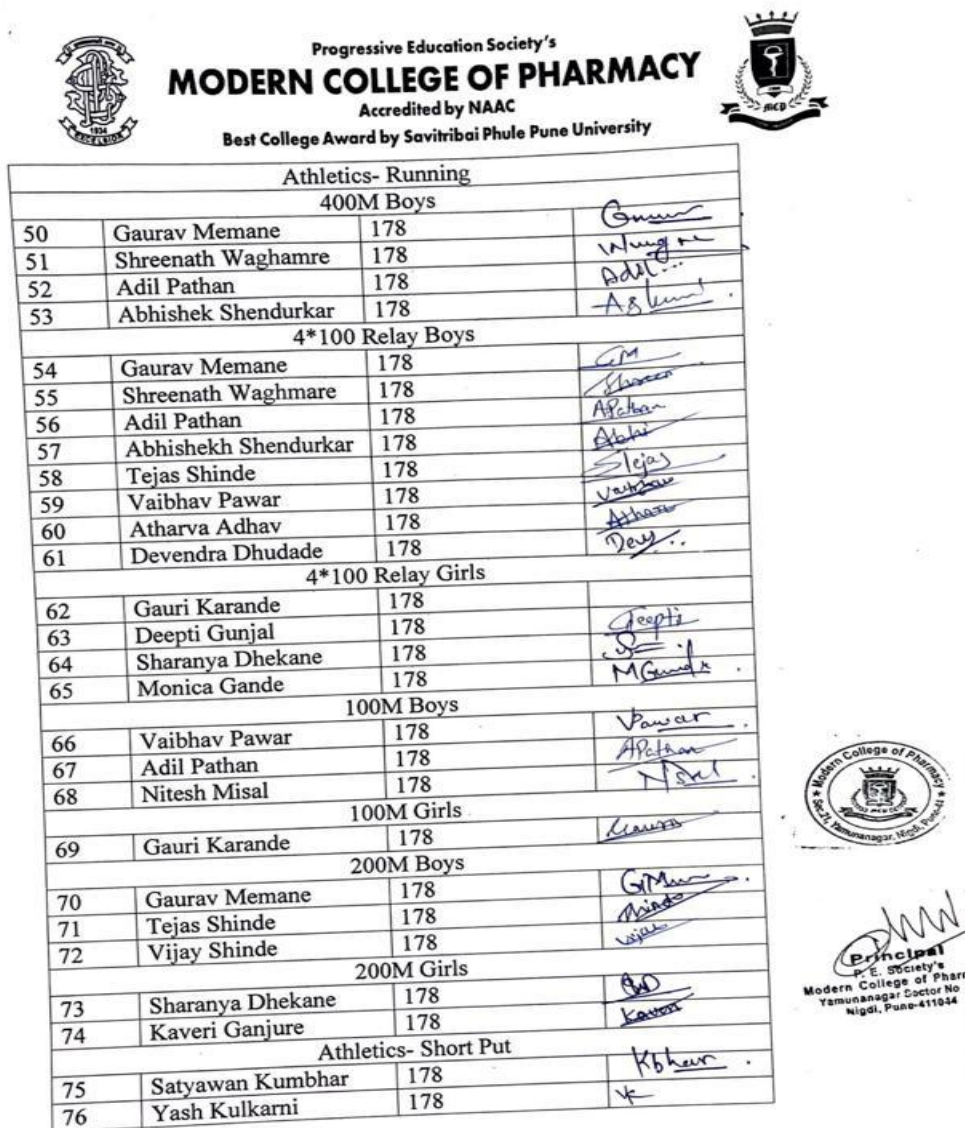 Progressive Education Society's
MODERN COLLEGE OF PHARMACY
Accredited by NAAC
Best College Award by Savitribai Phule Pune University
1934
EXCELSIOR
MCP
Athletics- Running
400M Boys
50 Gaurav Memane 178
51 Shreenath Waghamre 178
52 Adil Pathan 178 Adil...
53 Abhishek Shendurkar 178
4*100 Relay Boys
54 Gaurav Memane 178 GM
55 Shreenath Waghmare 178
56 Adil Pathan 178 APathan
57 Abhishekh Shendurkar 178 Abhi
58 Tejas Shinde 178 Stejas
59 Vaibhav Pawar 178
60 Atharva Adhav 178
61 Devendra Dhudade 178
4*100 Relay Girls
62 Gauri Karande 178
63 Deepti Gunjal 178 Deepti
64 Sharanya Dhekane 178
65 Monica Gande 178
100M Boys
66 Vaibhav Pawar 178 VPawar
67 Adil Pathan 178 APathan
68 Nitesh Misal 178
100M Girls
69 Gauri Karande 178
200M Boys
70 Gaurav Memane 178
71 Tejas Shinde 178
72 Vijay Shinde 178
200M Girls
73 Sharanya Dhekane 178
74 Kaveri Ganjure 178
Athletics- Short Put
75 Satyawan Kumbhar 178
76 Yash Kulkarni 178
Modern College of Pharmacy
Sec.21, Yamunanagar, Nigdi, Pune-44
Principal
P. E. Society's
Modern College of Phar
Yamunanagar Sector No
Nigdi, Pune-411044